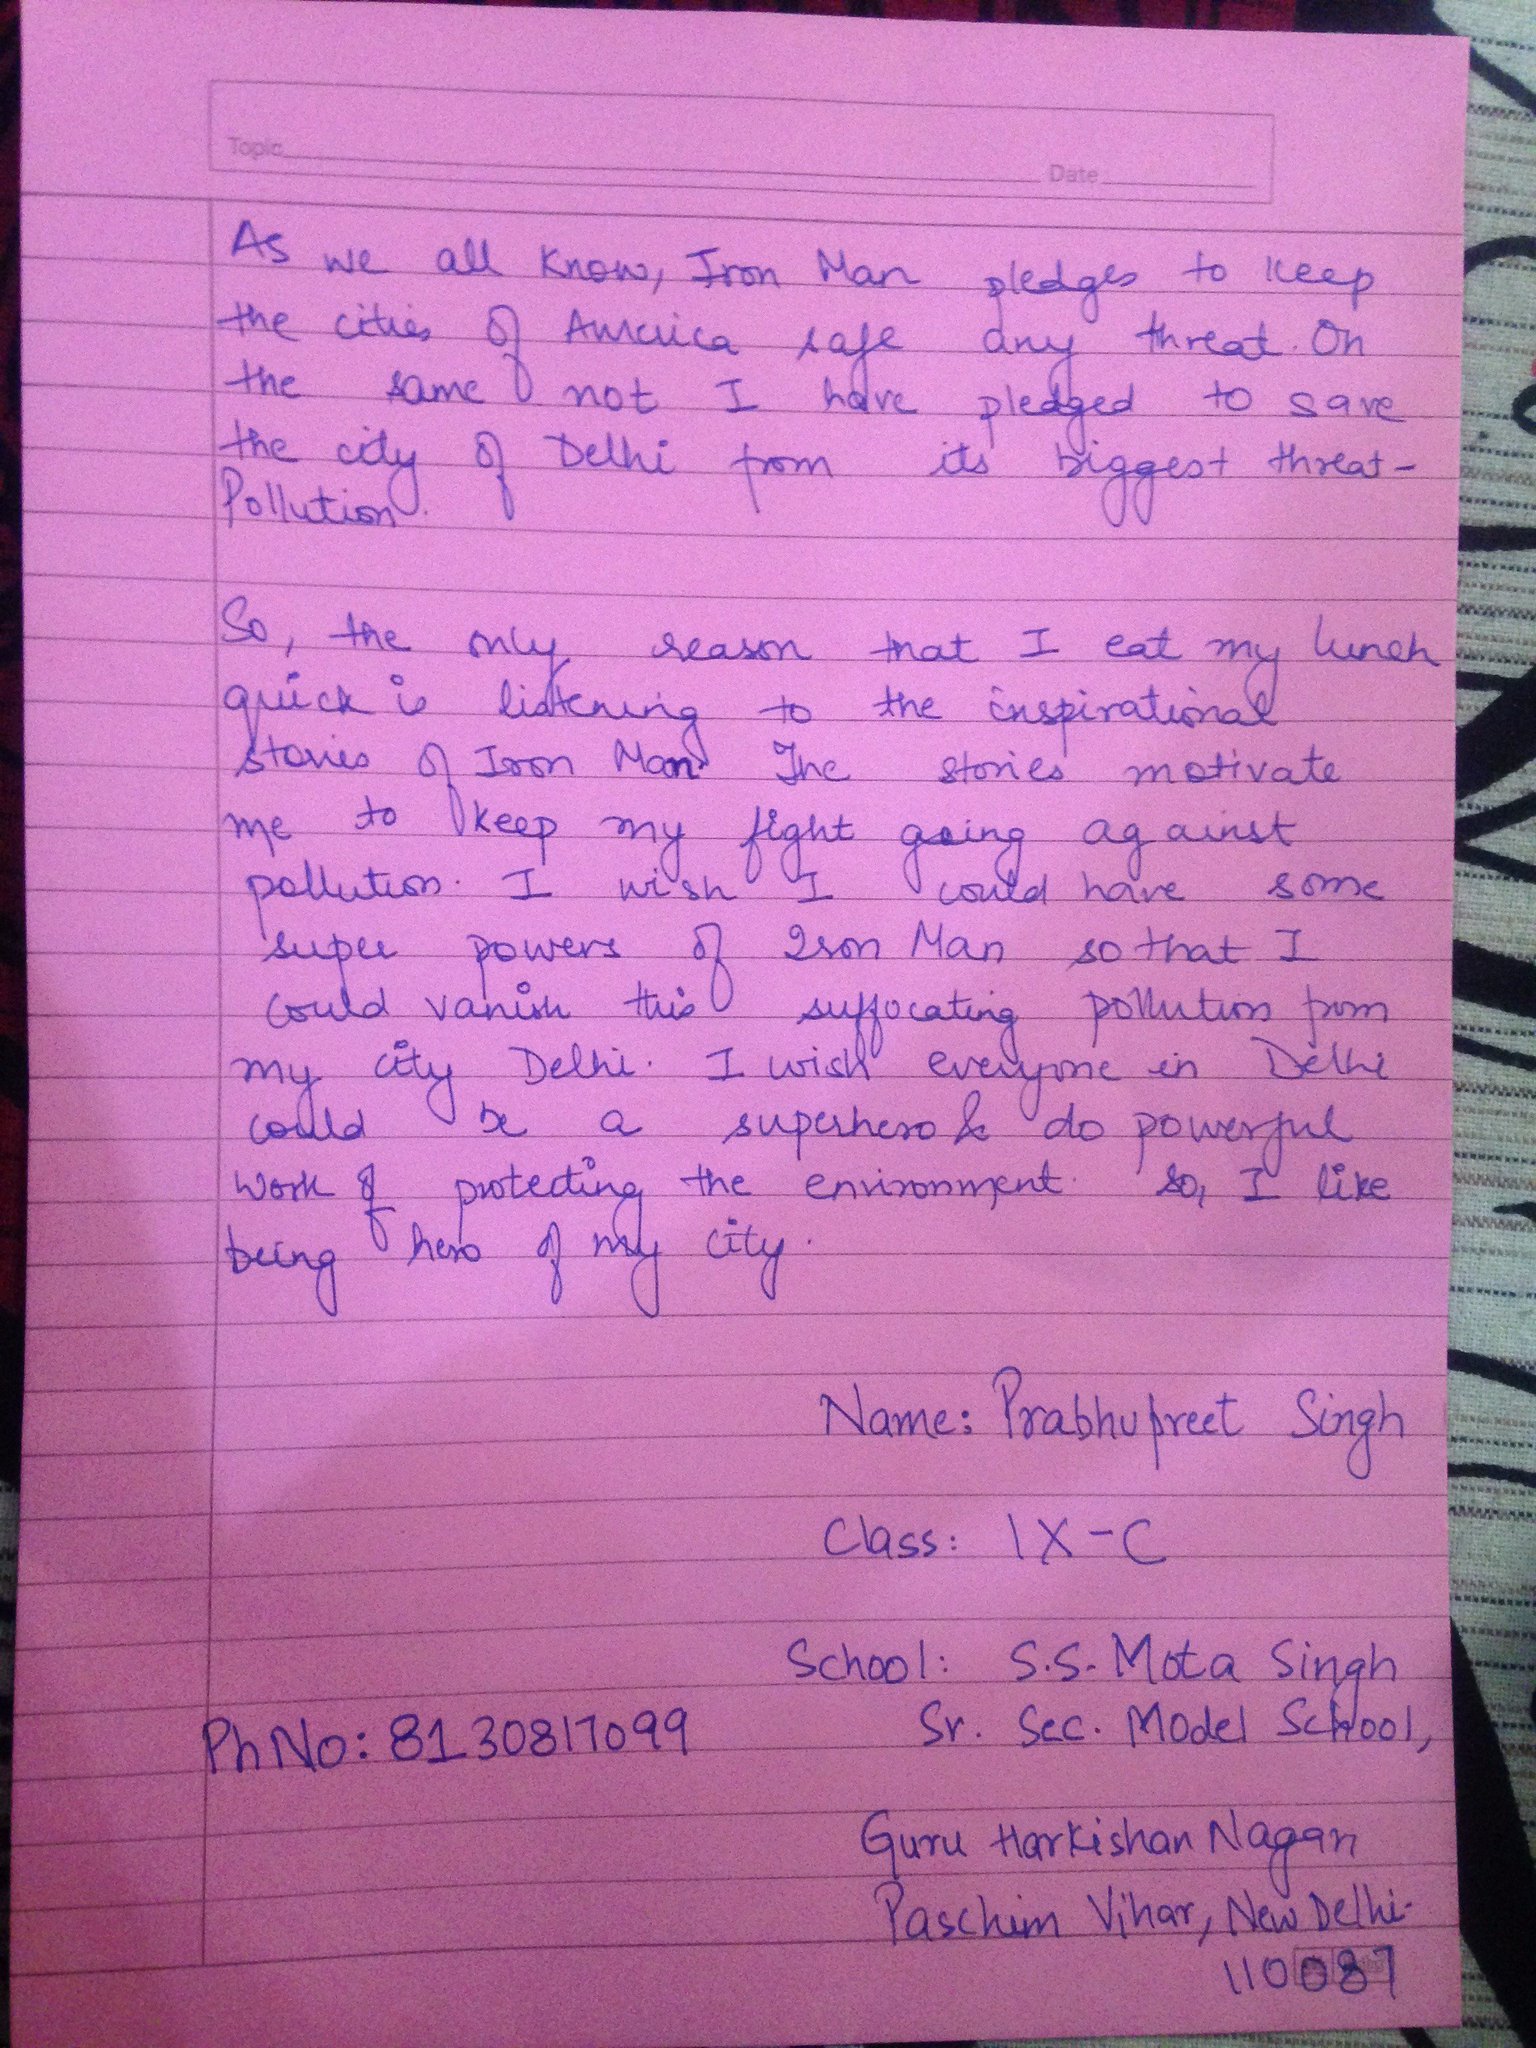 Topic
Date
As we all know, Iron Man pledges to keep
the cities of America safe any threat. On
the same not I have pledged to save
the city of Delhi from its biggest threat-
Pollution.
So, the only reason that I eat my lunch
quick is listening to the inspirational
stories of Iron Man. The stories motivate
me to keep my fight going against
pollution. I wish I could have some
super powers of Iron Man so that I
could vanish this suffocating pollution from
my city Delhi. I wish everyone in Delhi
could be a superhero & do powerful
work of protecting the environment. So, I like
being hero of my city.
Name: Prabhupreet Singh
Class: IX-C
School: S.S. Mota Singh
Sr. Sec. Model School,
Ph No: 8130817099
Guru Harkishan Nagar
Paschim Vihar, New Delhi-
110087